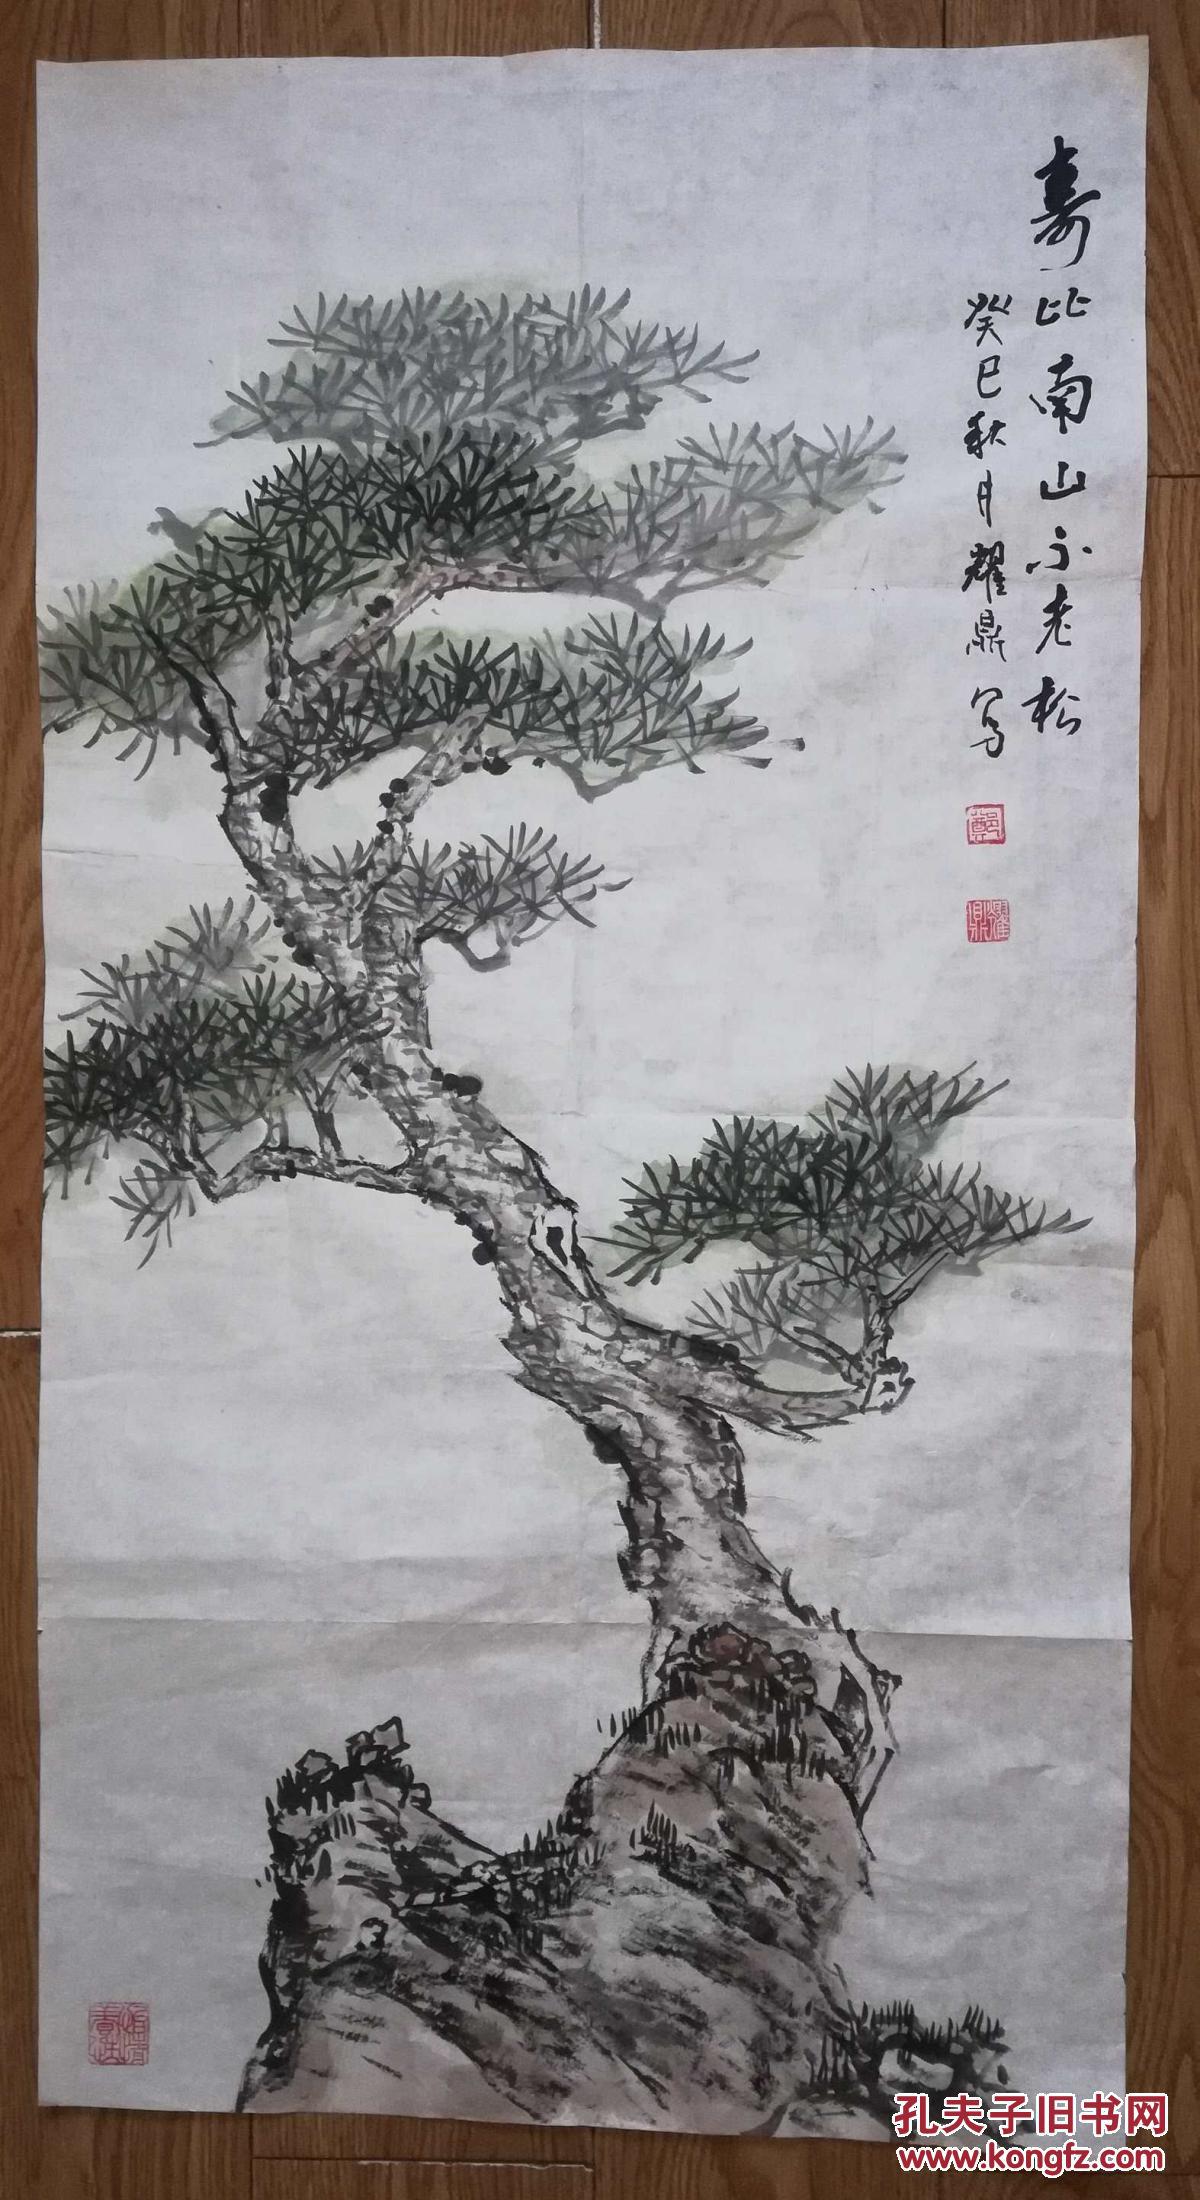 寿比南山不老松
癸巳秋月耀鼎写
鄭
耀鼎
孔夫子旧书网
www.kongfz.com